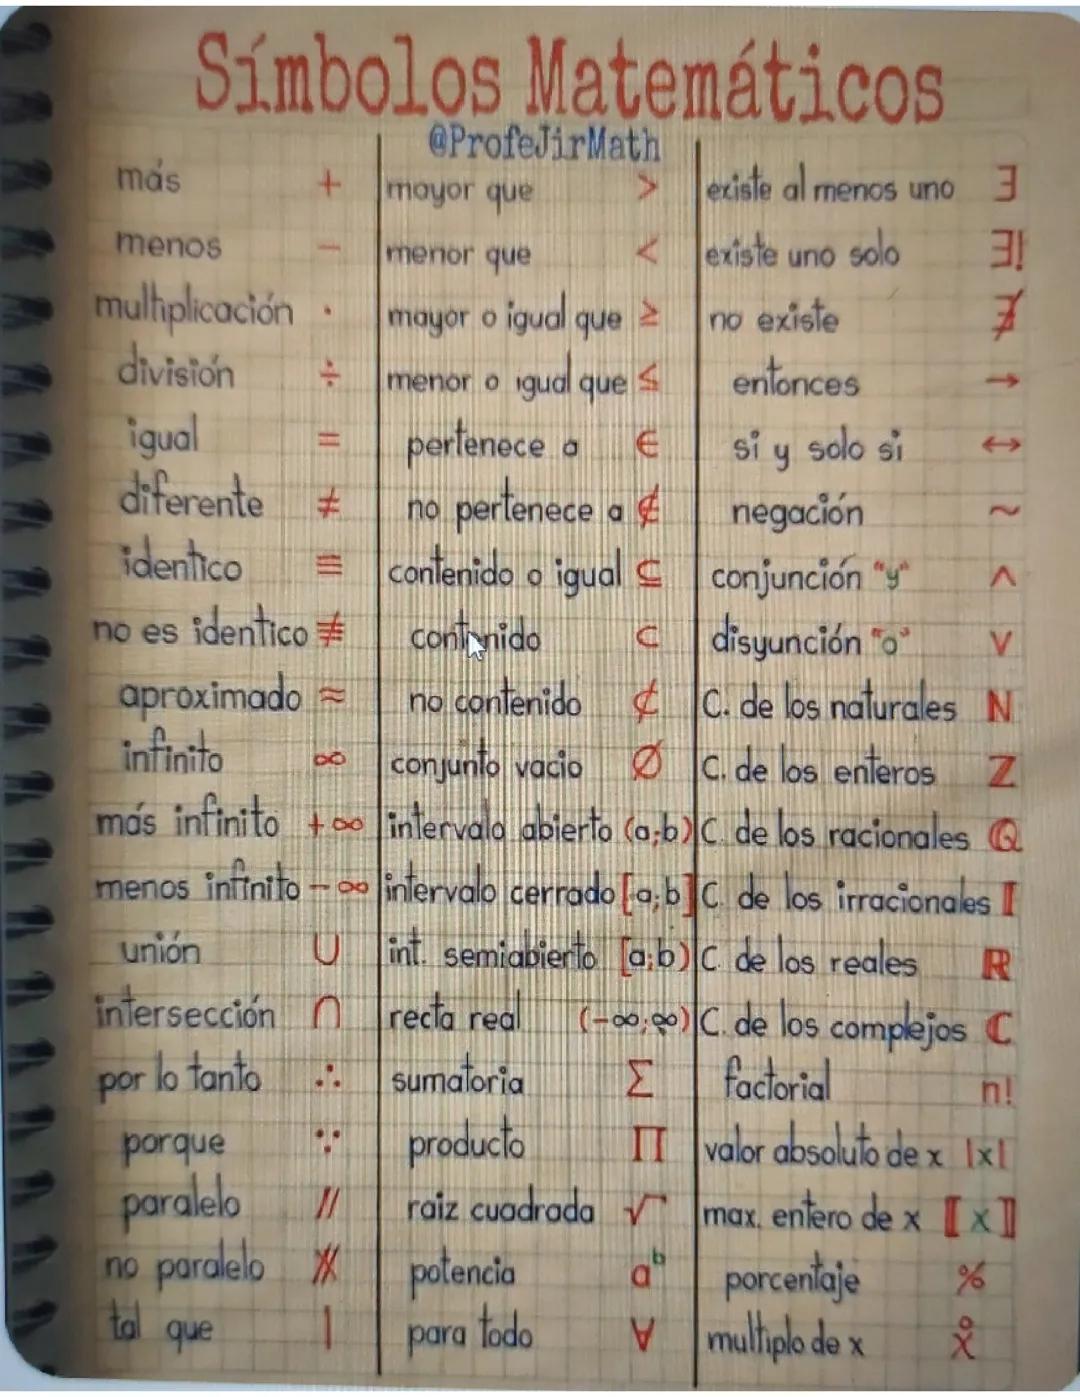 Símbolos Matemáticos
@ProfeJirMath
más +
menos −
multiplicación ·
división ÷
igual =
diferente ≠
identico ≡
no es identico ≢
aproximado ≈
infinito ∞
más infinito +∞
menos infinito −∞
unión ∪
intersección ∩
por lo tanto ∴
porque ∵
paralelo //
no paralelo ∦
tal que |
mayor que >
menor que <
mayor o igual que ≥
menor o igual que ≤
pertenece a ∈
no pertenece a ∉
contenido o igual ⊆
contenido ⊂
no contenido ⊄
conjunto vacio ∅
intervalo abierto (a;b)
intervalo cerrado [a;b]
int. semiabierto [a;b)
recta real (-∞;∞)
sumatoria Σ
producto Π
raiz cuadrada √
potencia aᵇ
para todo ∀
existe al menos uno ∃
existe uno solo ∃!
no existe ∄
entonces →
si y solo si ↔
negación ~
conjunción "y" ∧
disyunción "o" ∨
C. de los naturales N
C. de los enteros Z
C. de los racionales ℚ
C. de los irracionales 𝕀
C. de los reales ℝ
C. de los complejos ℂ
factorial n!
valor absoluto de x |x|
max. entero de x ⟦x⟧
porcentaje %
multiplo de x x̊